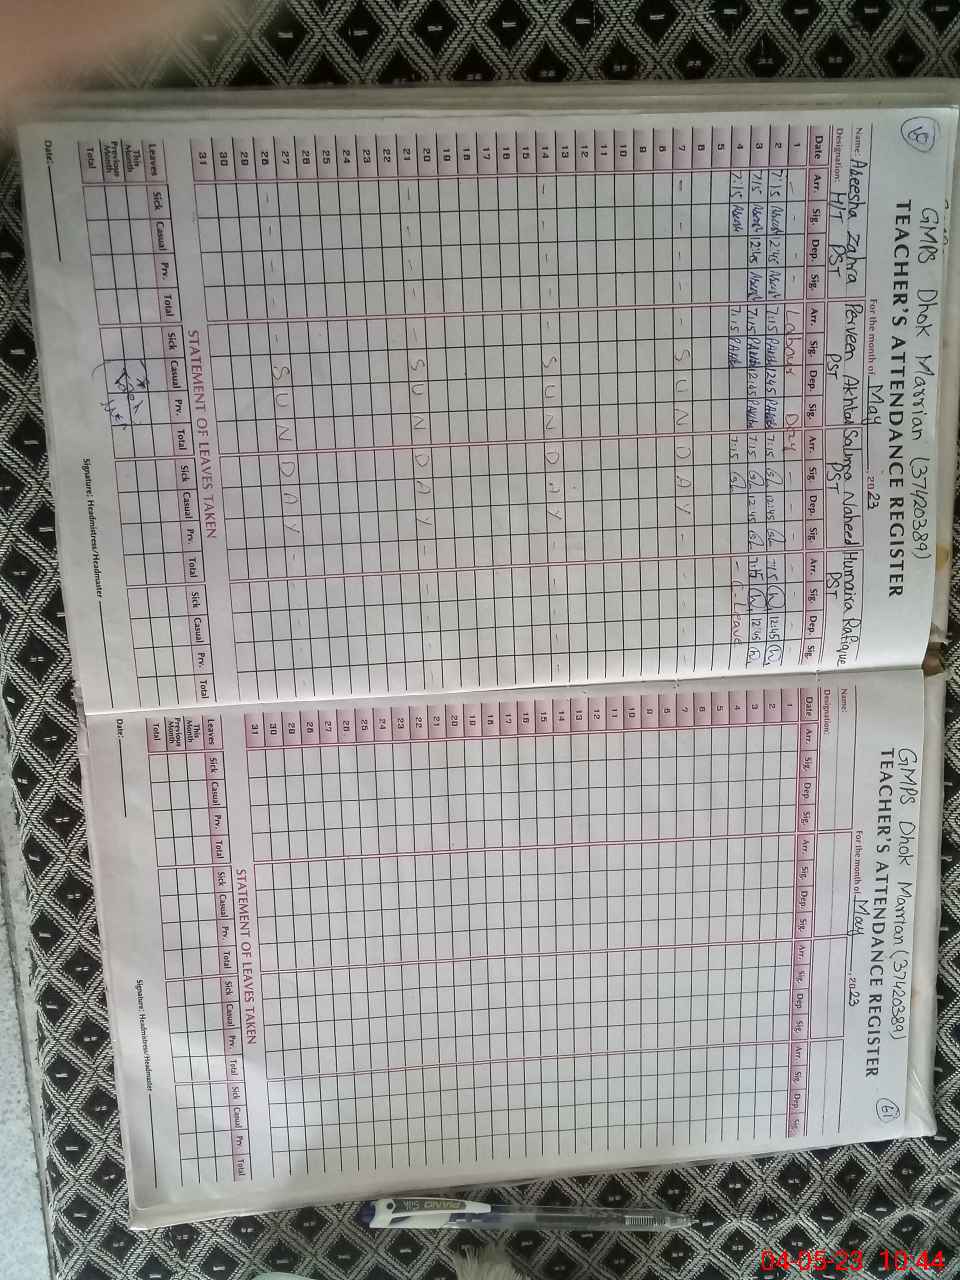 GMPS Dhok Marrian (37420389)
TEACHER'S ATTENDANCE REGISTER
For the month of May, 2023
Name: Abeesha Zahra Perveen Akhtar Salma Naheed Humaira Rafique
Designation: H/T PST PST PST PST
Date Arr. Sig. Dep. Sig. Arr. Sig. Dep. Sig. Arr. Sig. Dep. Sig. Arr. Sig. Dep. Sig.
1 - - - - Labour Day - - - - - -
2 7:15 12:45 7:15 12:45 7:15 12:45 7:15 12:45
3 7:15 12:45 7:15 12:45 7:15 12:45 7:15 12:45
4 7:15 7:15 7:15 - C. Leave
5
6
7 - - - - - S U N D A Y - - - - -
8
9
10
11
12
13
14 - - - - - S U N D A Y - - - - -
15
16
17
18
19
20
21 - - - - - S U N D A Y - - - - -
22
23
24
25
26
27
28 - - - - S U N D A Y - - - - -
29
30
31
STATEMENT OF LEAVES TAKEN
Leaves Sick Casual Prv. Total Sick Casual Prv. Total Sick Casual Prv. Total Sick Casual Prv. Total
This Month
Previous Month
Total
Date: Signature: Headmistress/Headmaster
GMPS Dhok Marrian (37420389)
61
TEACHER'S ATTENDANCE REGISTER
For the month of May, 2023
Name:
Designation:
Date Arr. Sig. Dep. Sig. Arr. Sig. Dep. Sig. Arr. Sig. Dep. Sig. Arr. Sig. Dep. Sig.
1
2
3
4
5
6
7
8
9
10
11
12
13
14
15
16
17
18
19
20
21
22
23
24
25
26
27
28
29
30
31
STATEMENT OF LEAVES TAKEN
Leaves Sick Casual Prv. Total Sick Casual Prv. Total Sick Casual Prv. Total Sick Casual Prv. Total
This Month
Previous Month
Total
Date: Signature: Headmistress/Headmaster
PIANO
04-05-23 10:44